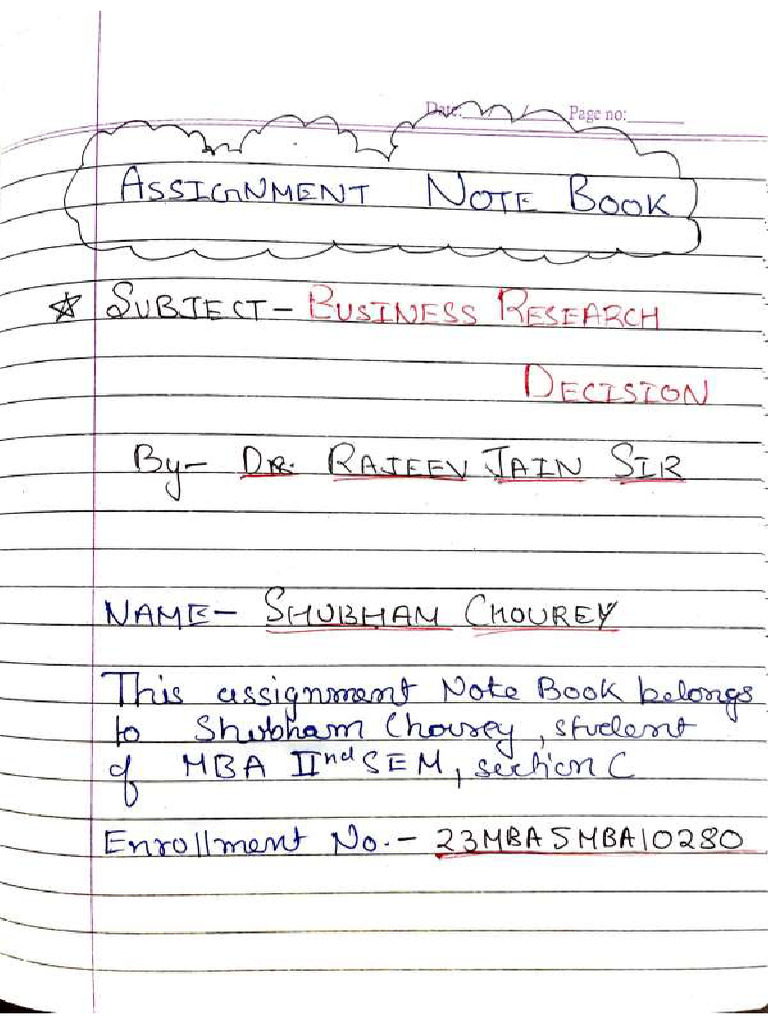 Date: / / Page no:
ASSIGNMENT NOTE BOOK
☆ SUBJECT - BUSINESS RESEARCH
DECISION
By - DR. RAJEEV JAIN SIR
NAME - SHUBHAM CHOUREY
This assignment Note Book belongs
to Shubham Chourey, student
of MBA IInd SEM, section C
Enrollment No. - 23MBA5MBA10280